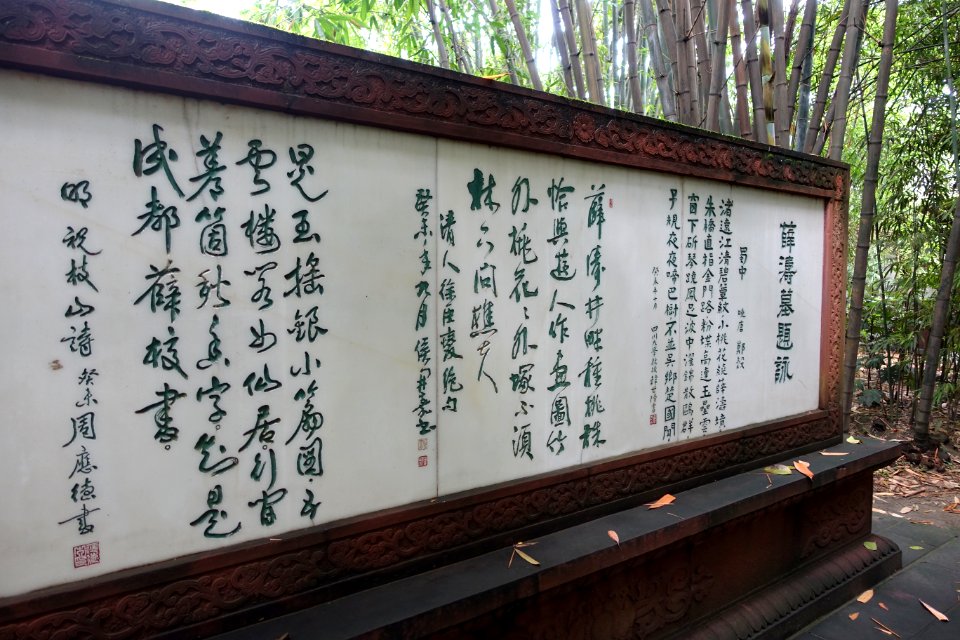 薛濤墓題詠
蜀中 晚唐 鄭谷
渚遠江清碧簟紋小桃花繞薛濤墳
朱橋直指金門路粉堞高連玉壘雲
窗下斫琴翹鳳足波中濯錦散鷗群
子規夜夜啼巴樹不並吳鄉楚國聞
四川大學教授
薛濤井畔種桃株
恰與遊人作畫圖竹
外桃花〻外塚不須
林下問樵夫
清人徐匡燮絕句
癸未年九月侯開嘉書
晃玉搖銀小扇圖五
雲樓閣女仙居行間
著箇秋香字知是
成都薛校書
明祝枝山詩癸未周應德書